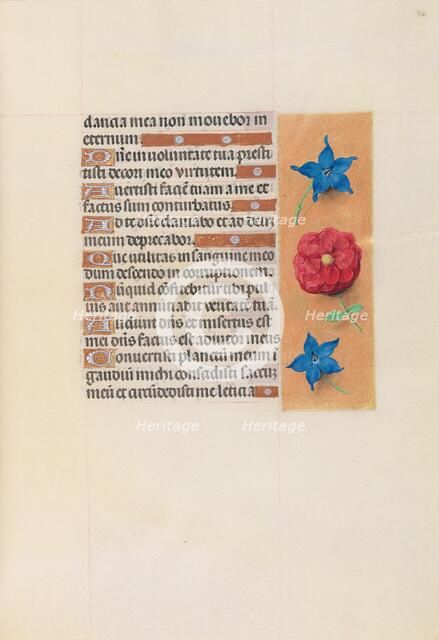 dancia mea non movebor in
eternum.
Dñe in voluntate tua presti
tisti decori meo virtutem.
Avertisti faciẽ tuam a me et
factus sum conturbatus.
Ad te dñe clamabo et ad deũ
meum deprecabor.
Que utilitas in sanguine meo
dum descendo in corruptionem.
Nũquid cõfitebitur tibi pul
vis aut annũtiabit veritatẽ tuã.
Audivit dñs et misertus est
mei dñs factus est adiutor meus
Convertisti planctũ meum ĩ
gaudiũ michi conscidisti saccũ
meũ et circũdedisti me leticia
Heritage
Heritage
Heritage
Heritage
Heritage
Heritage